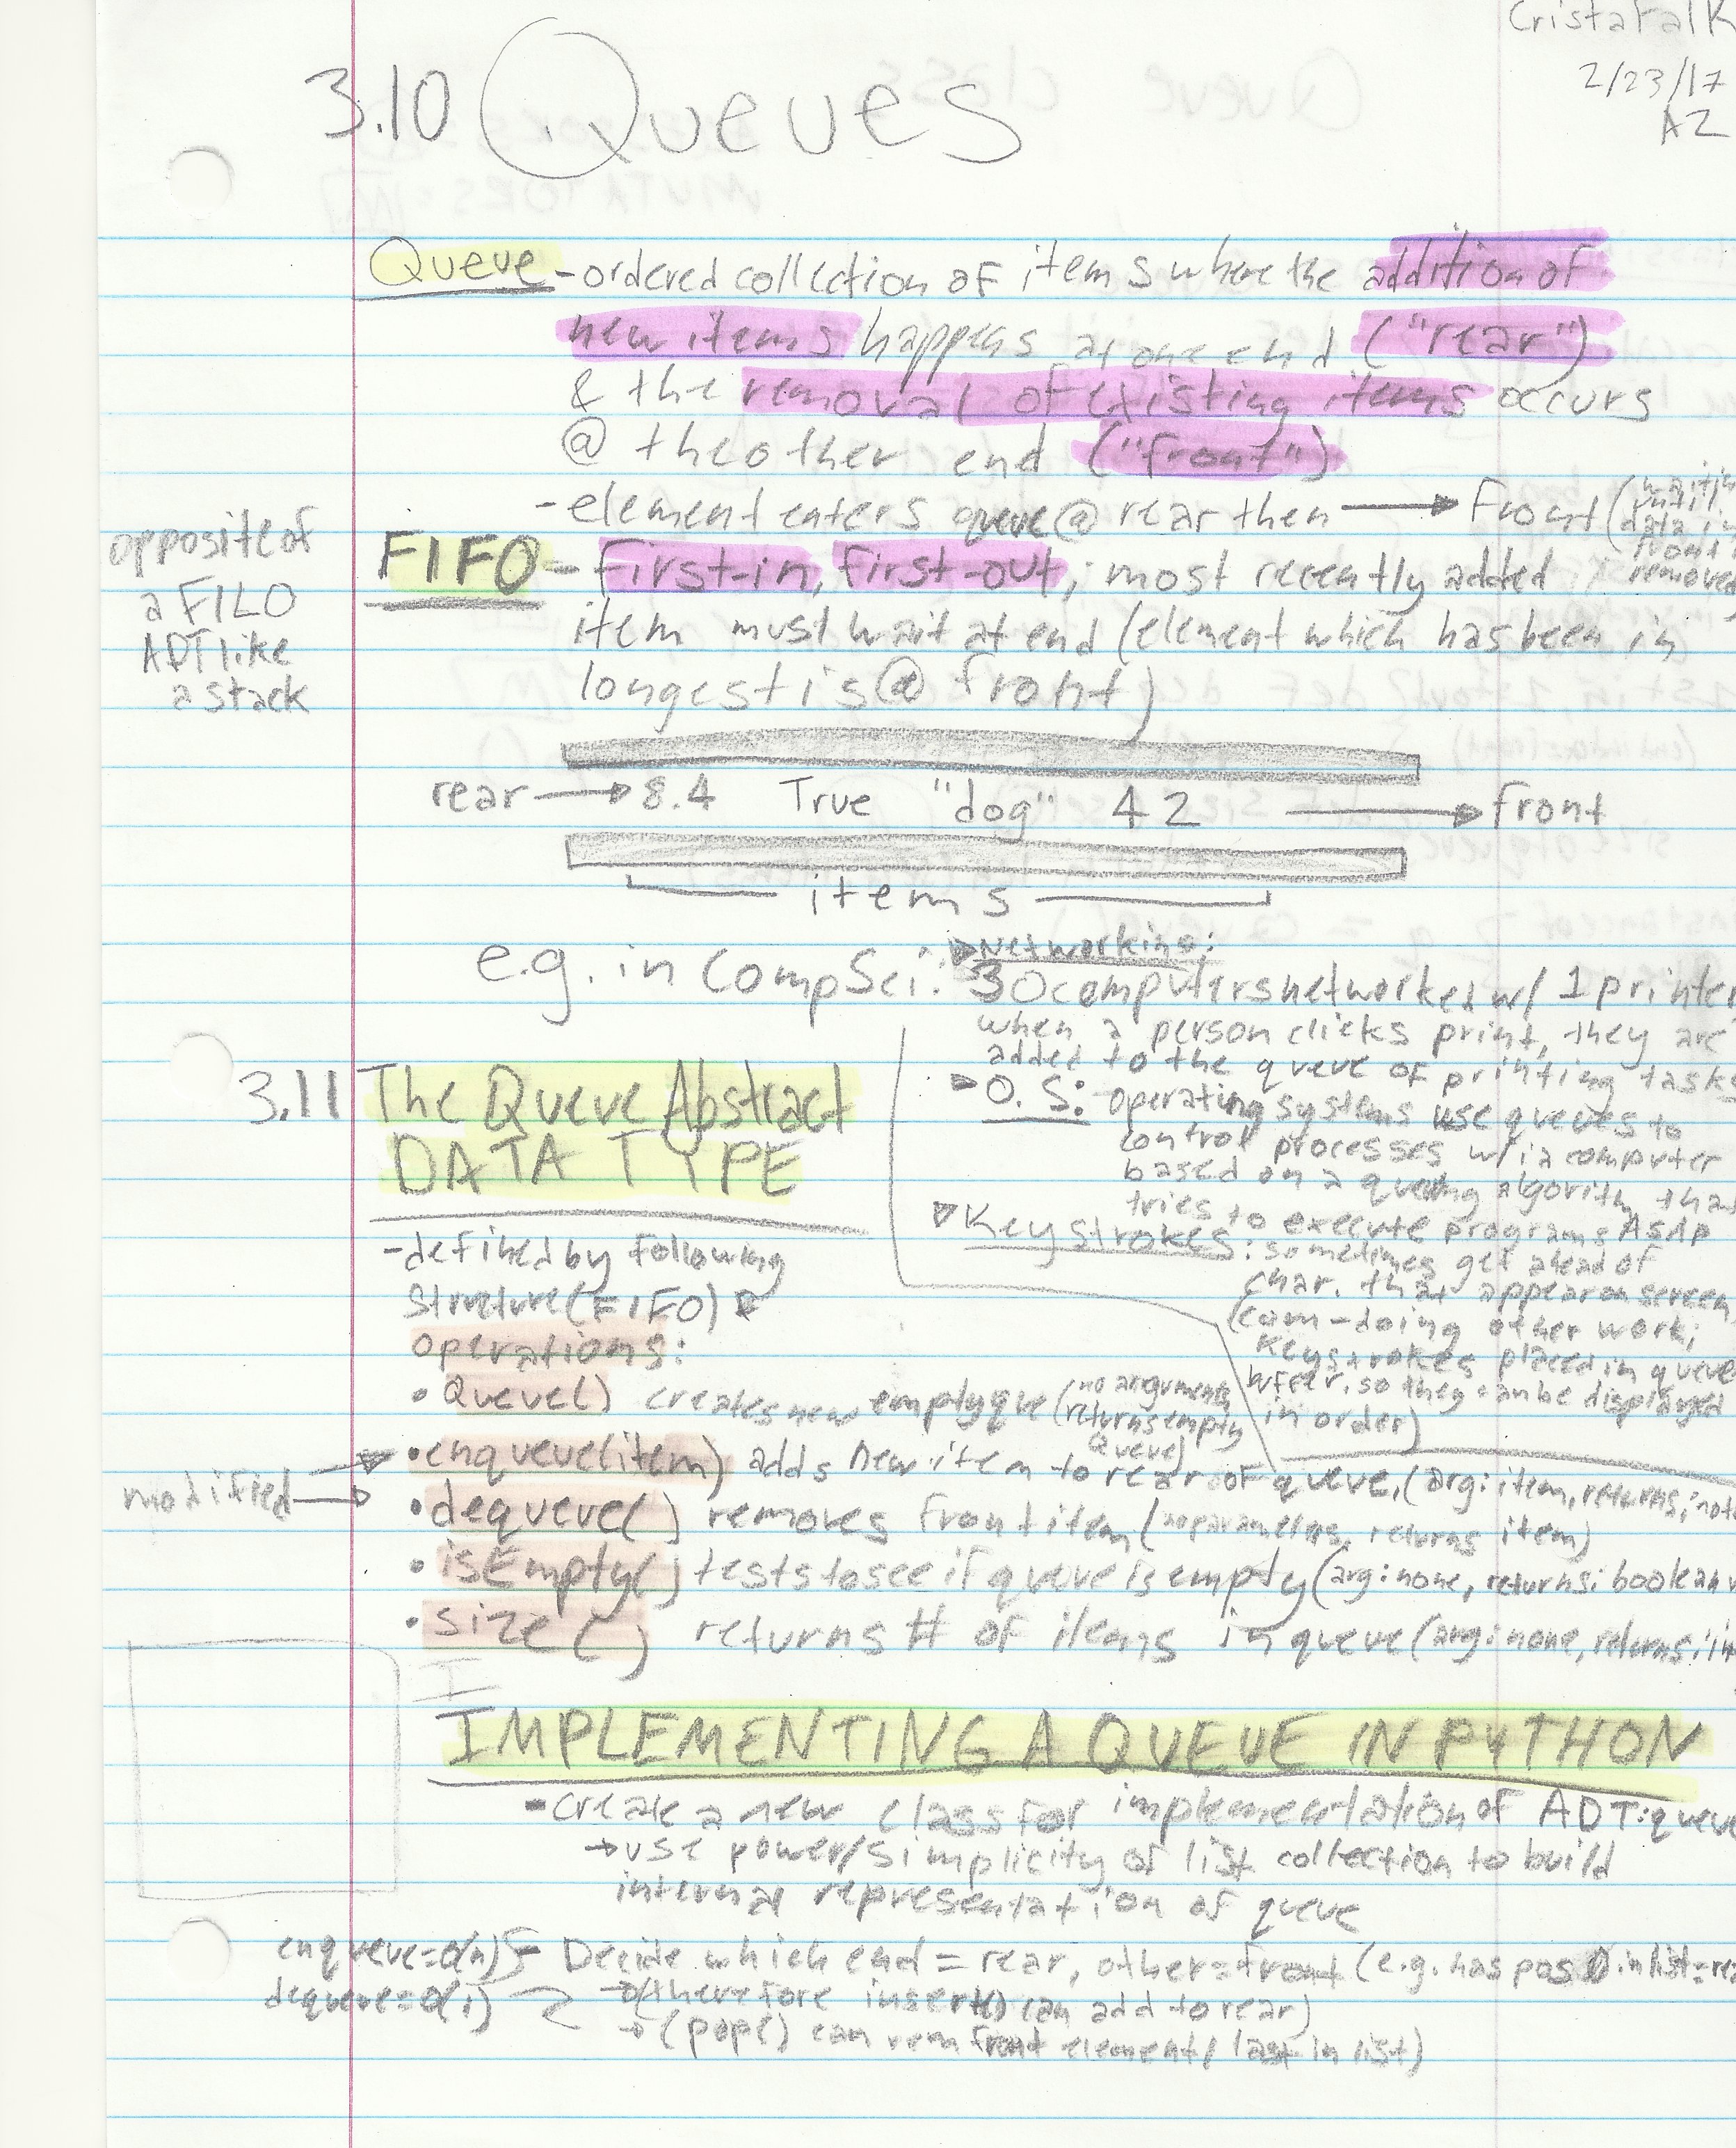 Crista Falk
2/23/17
A2
3.10 Queues
Queue - ordered collection of items where the addition of
new items happens at one end ("rear")
& the removal of existing items occurs
@ the other end ("front")
- element enters queue @ rear then → Front (waiting
until
data in
front is
removed
opposite of
a FILO
ADT like
a stack
FIFO - First-in, First-out; most recently added
item must wait at end (element which has been in
longest is @ front)
rear → 8.4 True "dog" 42 → front
items
e.g. in CompSci:
▸ Networking:
30 computers networked w/ 1 printer
when a person clicks print, they are
added to the queue of printing tasks
▸ O.S: operating systems use queues to
control processes w/i a computer
based on a queuing algorithm that
tries to execute programs ASAP
▸ Keystrokes: sometimes get ahead of
char. that appear on screen
(com - doing other work;
keystrokes placed in queue
buffer, so they can be displayed
in order)
3.11 The Queue Abstract
DATA TYPE
- defined by following
Structure (FIFO) &
operations:
• Queue() creates new empty que (no arguments
returns empty
queue)
modified → • enqueue(item) adds new item to rear of queue, (arg: item, returns; not
→ • dequeue() removes front item (no parameters, returns item)
• isEmpty() tests to see if queue is empty (arg: none, returns: boolean v
• size() returns # of items in queue (arg: none, returns: in
I
IMPLEMENTING A QUEUE IN PYTHON
- create a new class for implementation of ADT: queue
→ use power/simplicity of list collection to build
internal representation of queue
enqueue = O(n)
dequeue = O(1)
- Decide which end = rear, other = front (e.g. has pos 0 in list = rea
→ (therefore insert() can add to rear)
→ (pop() can rem front element/last in list)